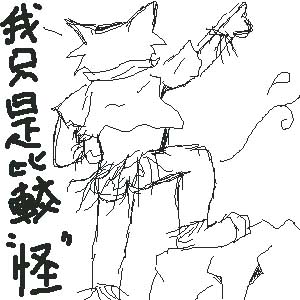 我只是比較"怪"